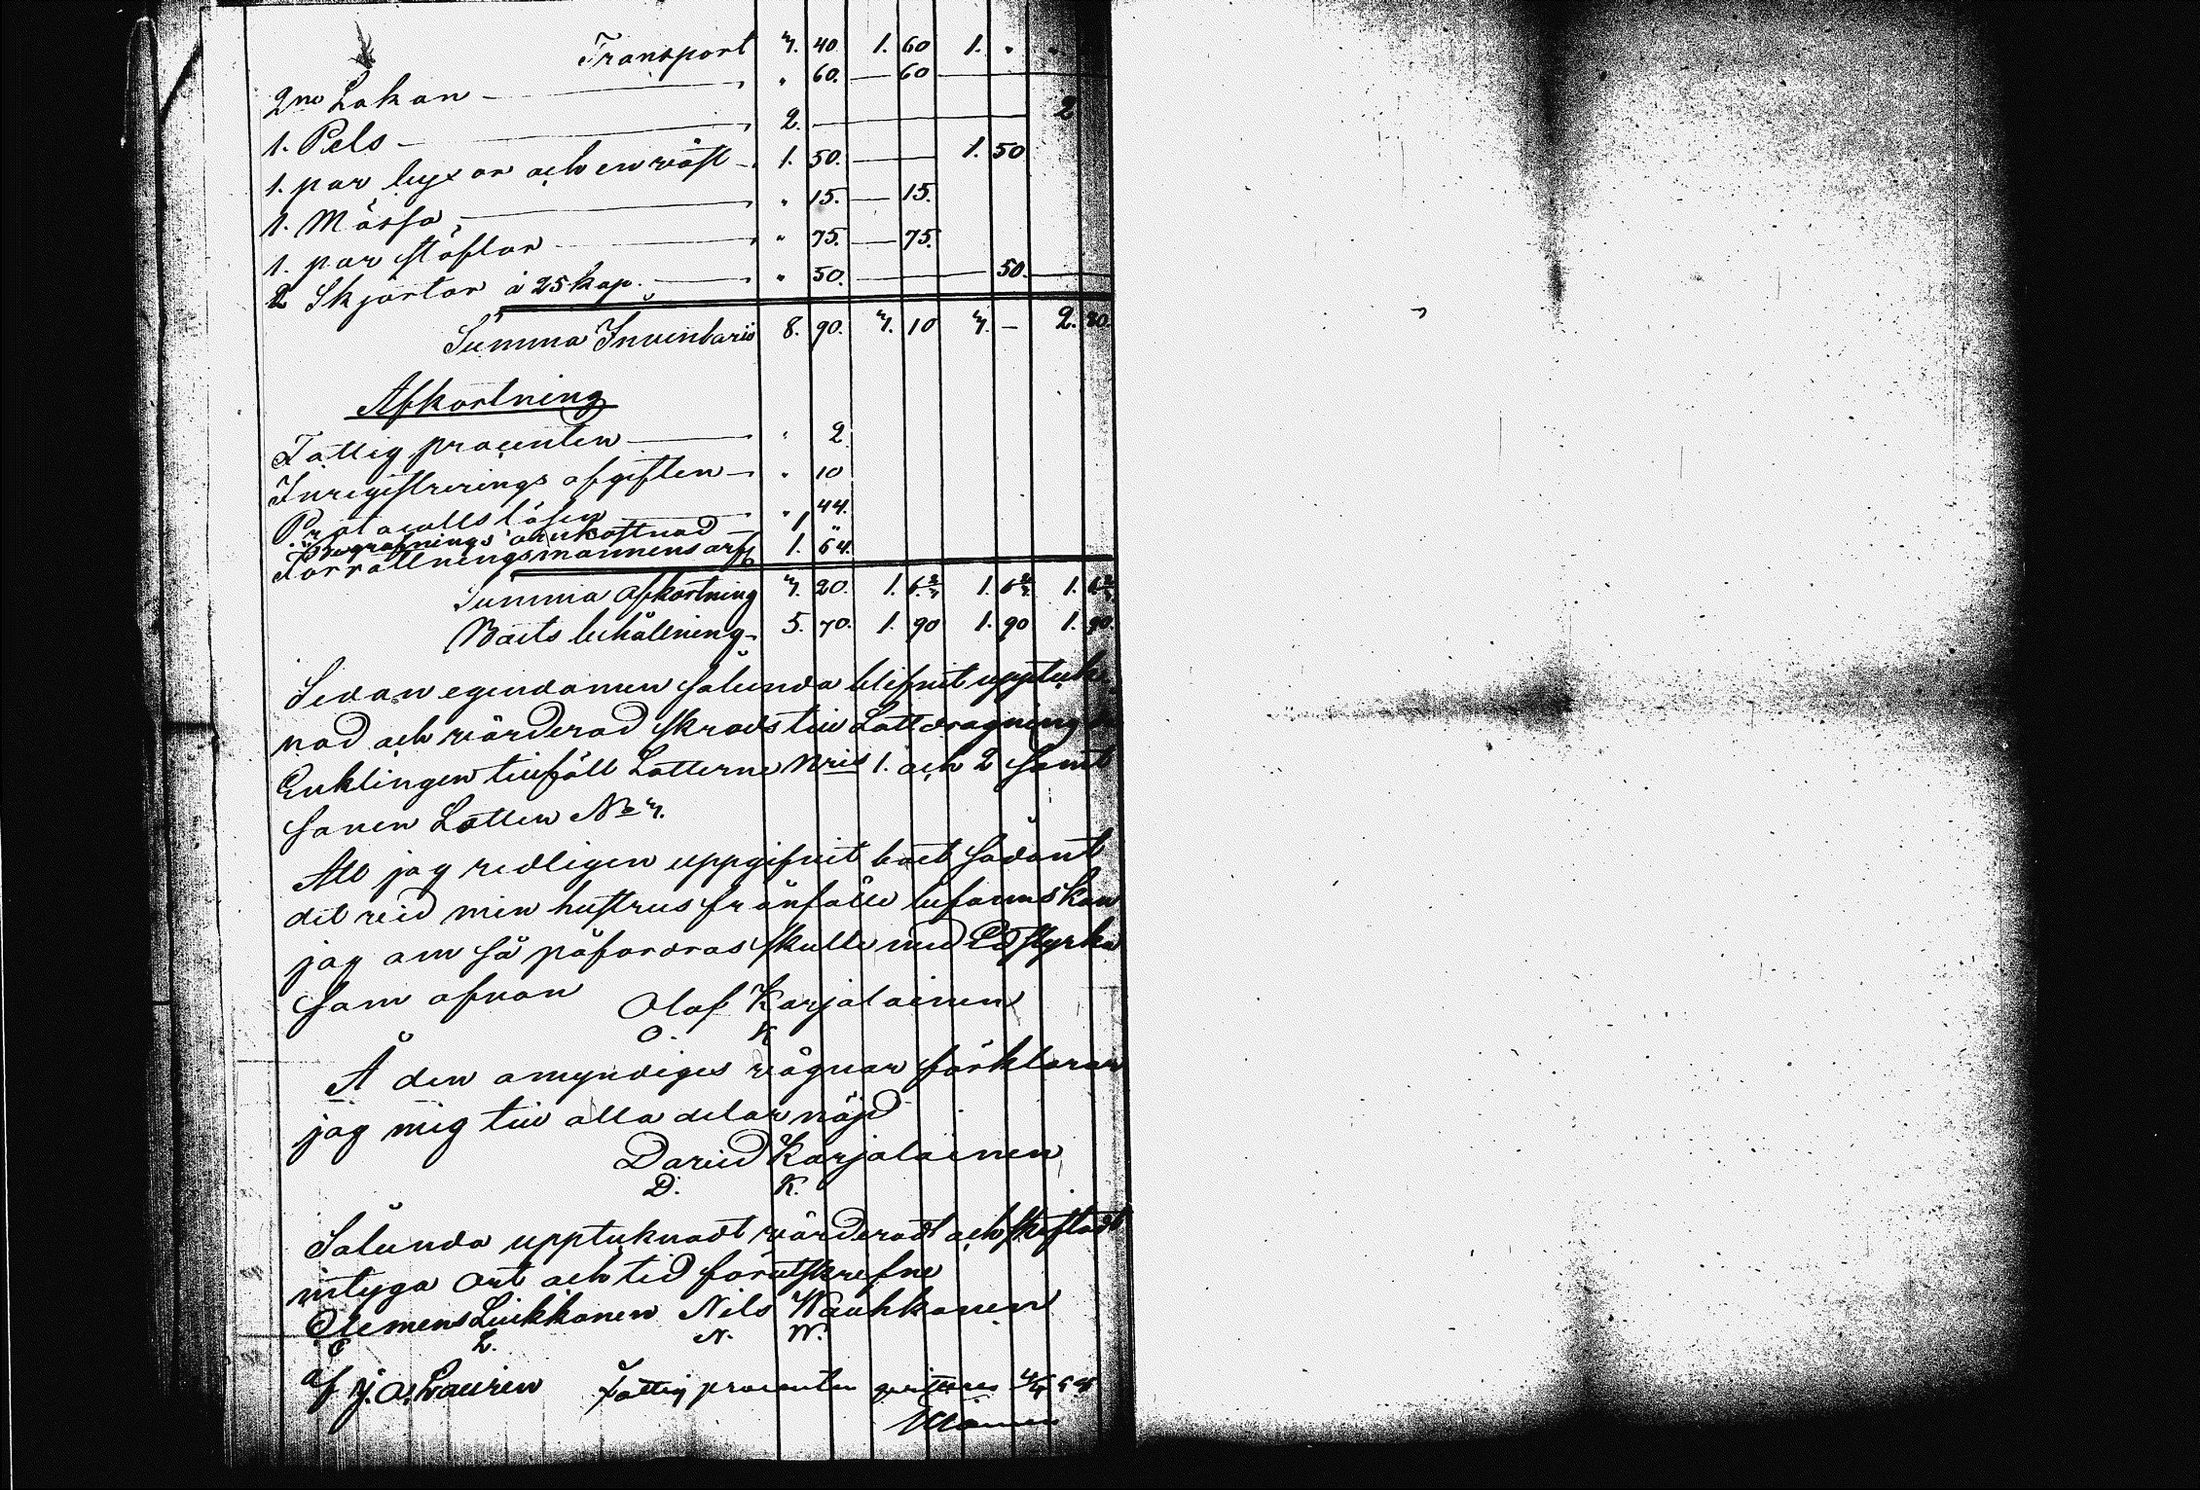 Transport 3. 40 1. 60 1. " "
2ne Lakan " 60. — 60
1. Pels 2. 2
1. par byxor och en väst 1. 50. 1. 50
1. Mössa " 15. — 15.
1. par stöflar " 75. — 75.
2 Skjortor à 25 kop. " 50. 50.
Summa Inventarii 8. 90. 3. 10 3. — 2. 80.
Afkortning
Fattig procenten " 2
Inregistrerings afgiften " 10
Protocolls lösen " 44.
Begrafnings omkostnad 1 "
Förrättningsmännens arf. 1. 64.
Summa afkortning 3. 20. 1. 6 2/3 1. 6 2/3 1. 6 2/3
Boets behållning 5. 70. 1. 90 1. 90 1. 90.
Sedan egendomen sålunda blifvit uppteck-
nad och värderad skreds till Lottdragning då
Enklingen tillföll Lotterne Nris 1. och 2 samt
sonen Lotten No 3.
Att jag redligen uppgifvit boet sådant
det vid min hustrus frånfälle befanns kan
jag om så påfordras skulle med Ed styrka
som ofvan Olof Karjalainen
O. K
Å den omyndiges vägnar förklarar
jag mig till alla delar nöjd
David Karjalainen
D. K.
Sålunda upptecknadt värderadt och skiftadt
intyga ort och tid förutskrefne
Clemens Liukkonen Nils Wauhkonen
C L. N. W.
af J. A. Laurin Fattig procenten qvitteras